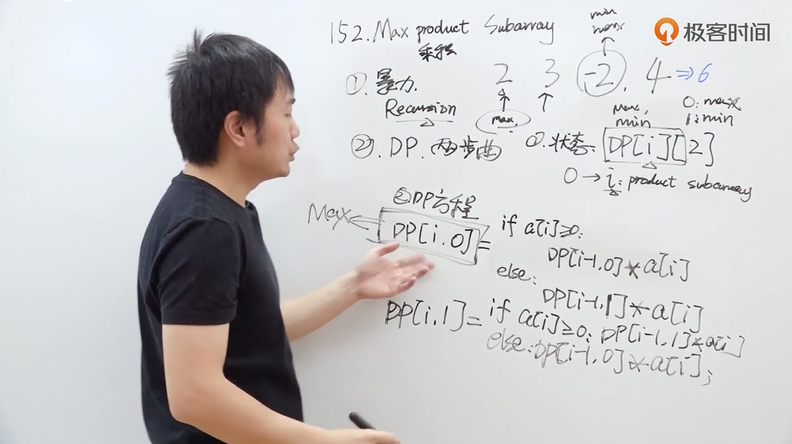 极客时间
152. Max product Subarray
乘积
min
max
①. 暴力. 2 3 -2. 4 ⇒6
Recursion
max
max,
min
0: max
1: min
②. DP. 两步曲 ①. 状态: DP[i][2]
0 → i: product subarray
②DP方程
Max
DP[i, 0] = if a[i]≥0:
DP[i-1, 0] * a[i]
else:
DP[i-1, 1] * a[i]
DP[i, 1] = if a[i]≥0: DP[i-1, 1] * a[i]
else: DP[i-1, 0] * a[i];